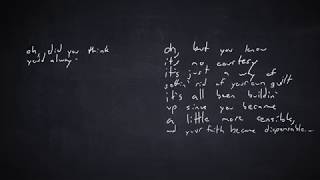 oh, did you think
you'd always
oh, but you know
it's no courtesy
it's just a way of
gettin' rid of your own guilt
it's all been buildin'
up since you became
a little more sensible,
and your faith became dispensable...